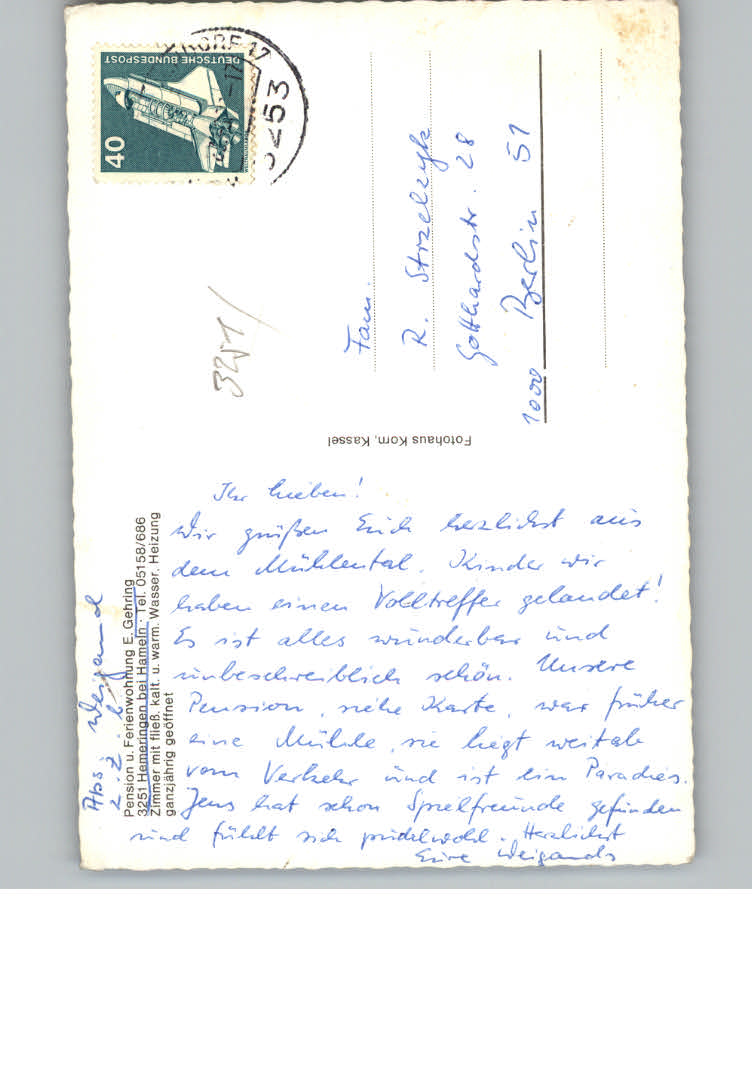 Ihr Lieben!
Wir grüßen Euch herzlichst aus
dem Mühlental. Kinder wir
haben einen Volltreffer gelandet!
Es ist alles wunderbar und
unbeschreiblich schön. Unsere
Pension, siehe Karte, war früher
eine Mühle, sie liegt weitab
vom Verkehr und ist ein Paradies.
Jens hat schon Spielfreunde gefunden
und fühlt sich pudelwohl. Herzlichst
Eure Weigands
Abs. Weigand
z. Z.
Pension u. Ferienwohnung E. Gehring
3251 Hemeringen bei Hameln · Tel. 05158/686
Zimmer mit fließ. kalt. u. warm. Wasser, Heizung
ganzjährig geöffnet
Fotohaus Korn, Kassel
DEUTSCHE BUNDESPOST
40
3253
3251/
Fam.
R. Strzelczyk
Gotthardstr. 28
1000 Berlin 51